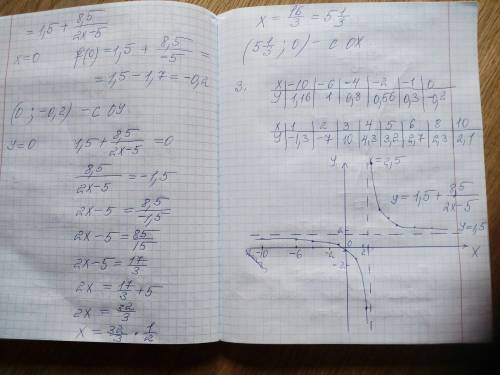 = 1,5 + 8,5/(2x-5)
x=0 f(0) = 1,5 + 8,5/-5 =
= 1,5 - 1,7 = -0,2
(0 ; -0,2) - с ОУ
y=0 1,5 + 8,5/(2x-5) = 0
8,5/(2x-5) = -1,5
2x-5 = 8,5/-1,5
2x-5 = 85/15
2x-5 = 17/3
2x = 17/3 + 5
2x = 32/3
x = 32/3 · 1/2
x = 16/3 = 5 1/3
(5 1/3 ; 0) - с ОХ
3.
x | -10 | -6 | -4 | -2 | -1 | 0
y | 1,16 | 1 | 0,8 | 0,56 | 0,3 | -0,2
x | 1 | 2 | 3 | 4 | 5 | 6 | 8 | 10
y | -1,3 | -7 | 10 | 4,3 | 3,2 | 2,7 | 2,3 | 2,1
y
x=2,5
y = 1,5 + 8,5/(2x-5)
2
y=1,5
-10 -6 -2 0 2 x
-2